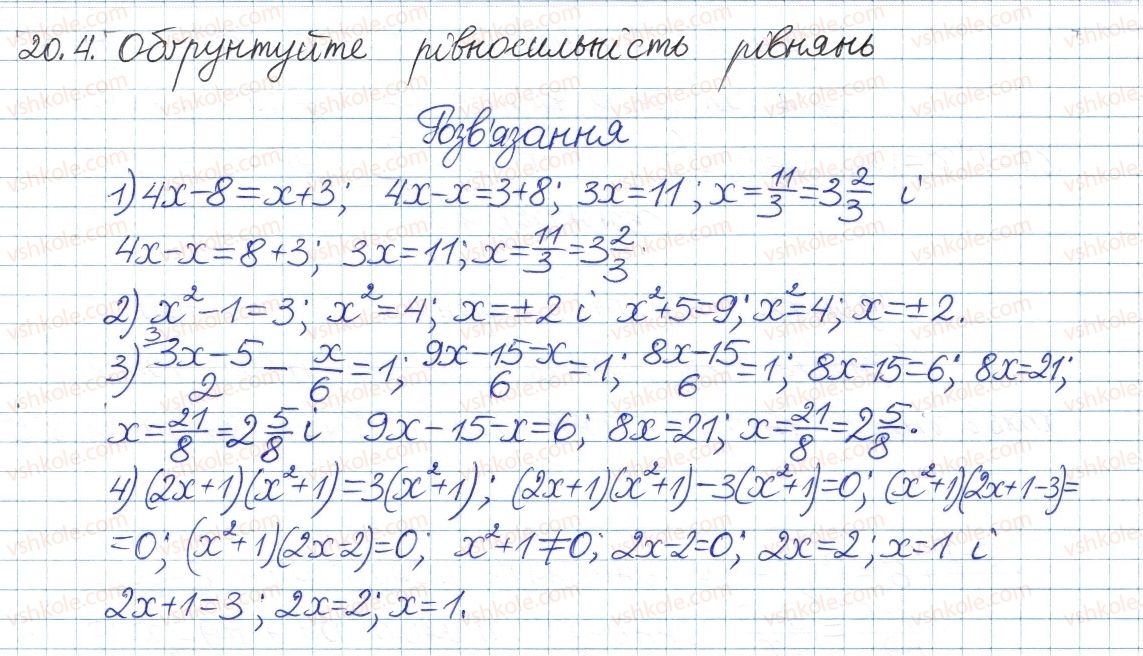 20.4. Обґрунтуйте рівносильність рівнянь
Розв'язання
1) 4x-8=x+3; 4x-x=3+8; 3x=11; x=11/3=3 2/3 і
4x-x=8+3; 3x=11; x=11/3=3 2/3.
2) x²-1=3; x²=4; x=±2 і x²+5=9; x²=4; x=±2.
3) ³⁾(3x-5)/2 - x/6=1; (9x-15-x)/6=1; (8x-15)/6=1; 8x-15=6; 8x=21;
x=21/8=2 5/8 і 9x-15-x=6; 8x=21; x=21/8=2 5/8.
4) (2x+1)(x²+1)=3(x²+1); (2x+1)(x²+1)-3(x²+1)=0; (x²+1)(2x+1-3)=
=0; (x²+1)(2x-2)=0; x²+1≠0; 2x-2=0; 2x=2; x=1 і
2x+1=3; 2x=2; x=1.
vshkole.com